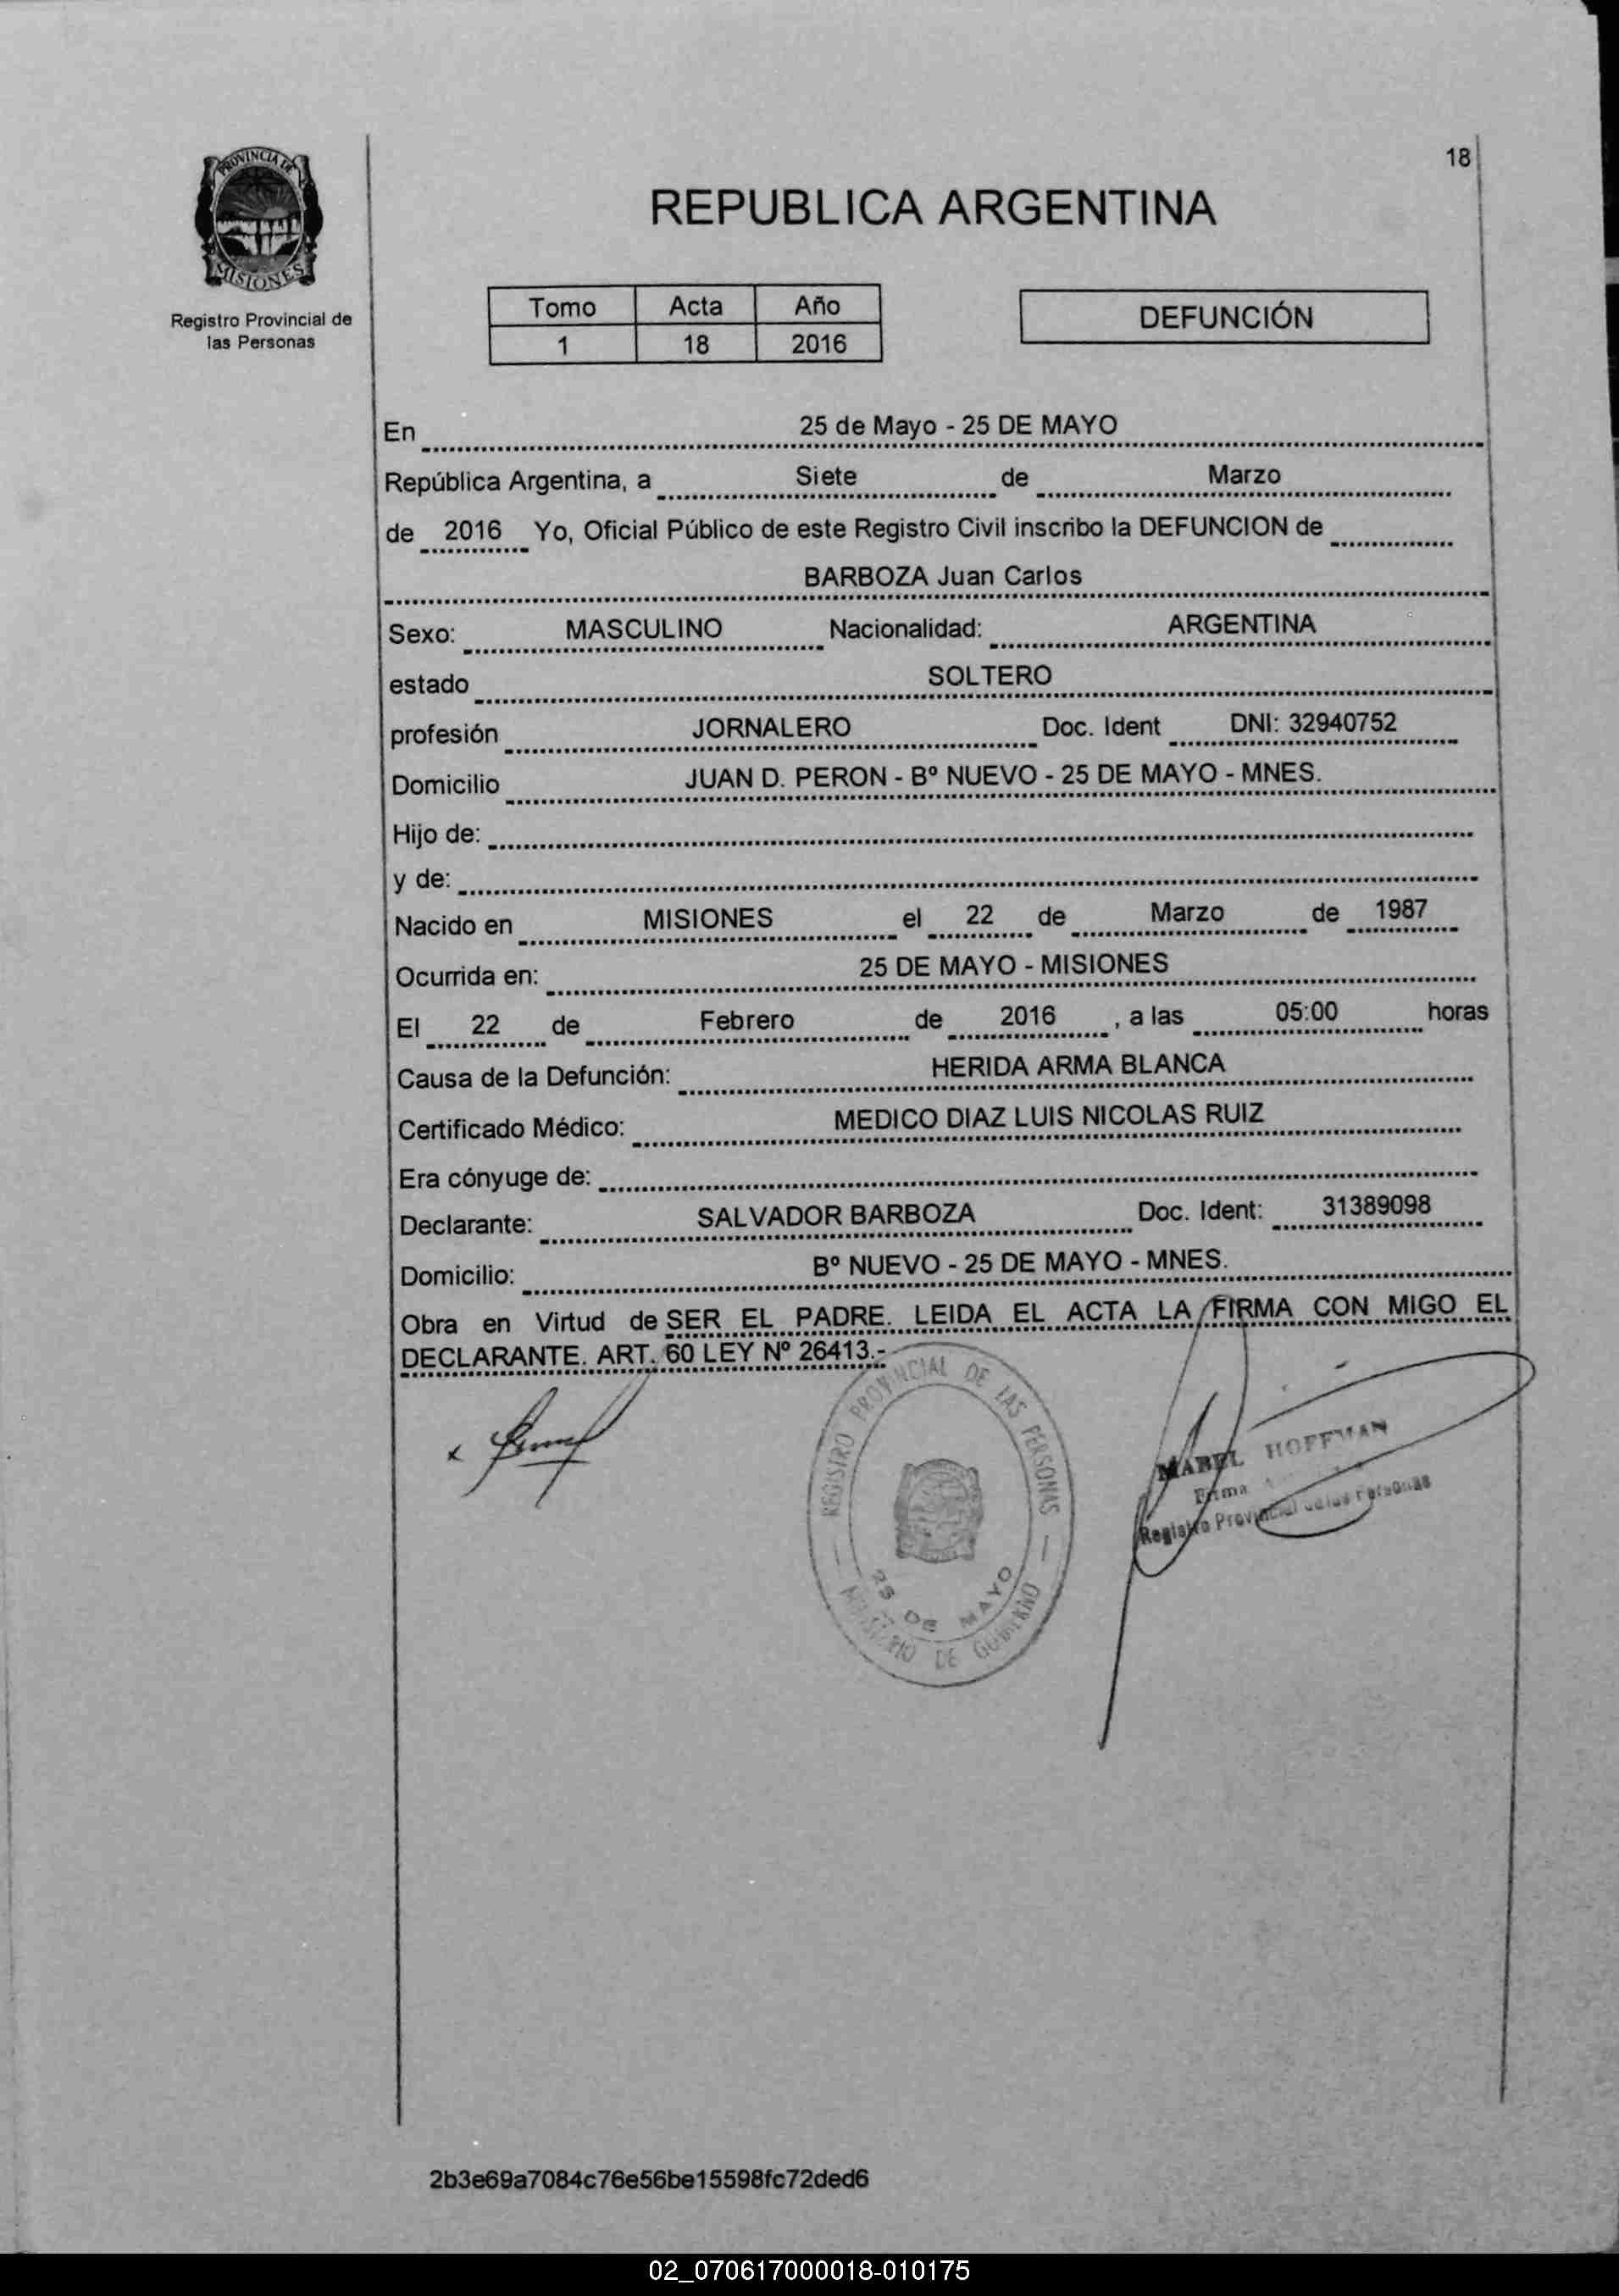 18
PROVINCIA DE
MISIONES
Registro Provincial de
las Personas
REPUBLICA ARGENTINA
Tomo Acta Año
1 18 2016
DEFUNCIÓN
En 25 de Mayo - 25 DE MAYO
República Argentina, a Siete de Marzo
de 2016 Yo, Oficial Público de este Registro Civil inscribo la DEFUNCION de
BARBOZA Juan Carlos
Sexo: MASCULINO Nacionalidad: ARGENTINA
estado SOLTERO
profesión JORNALERO Doc. Ident DNI: 32940752
Domicilio JUAN D. PERON - Bº NUEVO - 25 DE MAYO - MNES.
Hijo de:
y de:
Nacido en MISIONES el 22 de Marzo de 1987
Ocurrida en: 25 DE MAYO - MISIONES
El 22 de Febrero de 2016 , a las 05:00 horas
Causa de la Defunción: HERIDA ARMA BLANCA
Certificado Médico: MEDICO DIAZ LUIS NICOLAS RUIZ
Era cónyuge de:
Declarante: SALVADOR BARBOZA Doc. Ident: 31389098
Domicilio: Bº NUEVO - 25 DE MAYO - MNES.
Obra en Virtud de SER EL PADRE. LEIDA EL ACTA LA FIRMA CON MIGO EL
DECLARANTE. ART. 60 LEY Nº 26413.-
REGISTRO PROVINCIAL DE LAS PERSONAS
25 DE MAYO
MINISTERIO DE GOBIERNO
MABEL HOFFMAN
Firma
Registro Provincial de las Personas
2b3e69a7084c76e56be15598fc72ded6
02_070617000018-010175